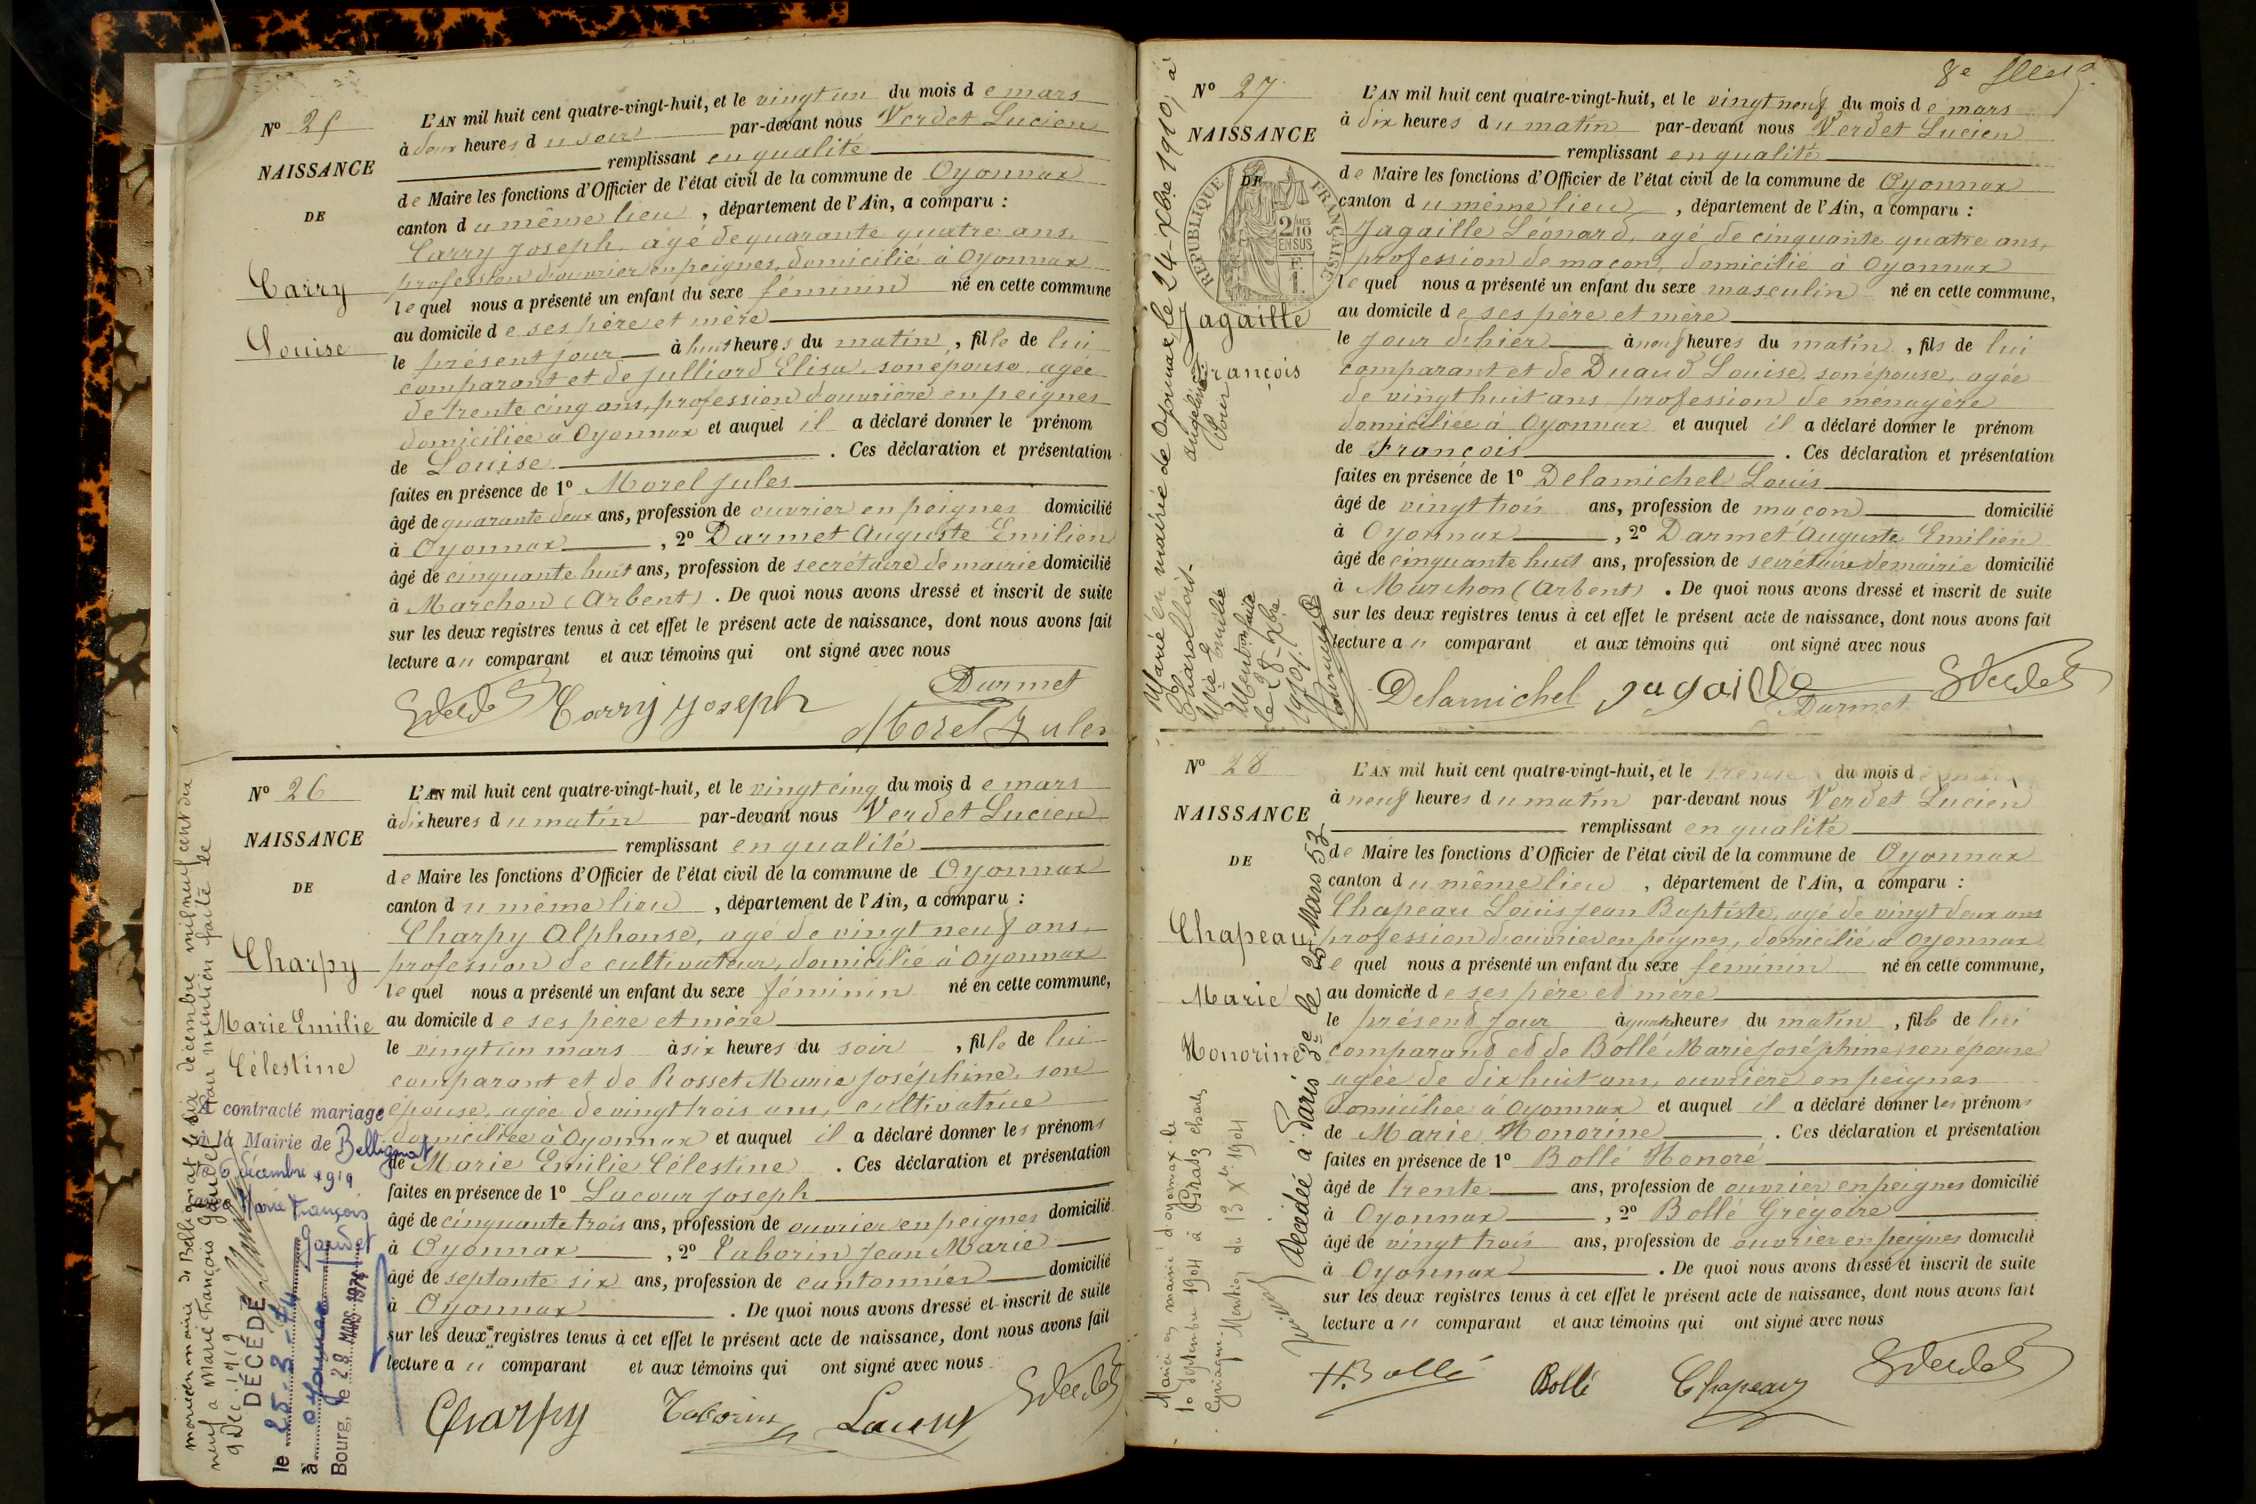 N° 25
NAISSANCE
DE
Carry
Louise
L'AN mil huit cent quatre-vingt-huit, et le vingt un du mois de mars
à deux heures du soir par-devant nous Verdet Lucien
remplissant en qualité
de Maire les fonctions d'Officier de l'état civil de la commune de Oyonnax
canton du même lieu, département de l'Ain, a comparu :
Carry Joseph, agé de quarante quatre ans,
profession d'ouvrier en peignes, domicilié à Oyonnax
lequel nous a présenté un enfant du sexe féminin né en cette commune
au domicile de ses père et mère
le présent jour à huit heures du matin, fille de lui
comparant et de Julliard Elisa, son épouse, agée
de trente cinq ans, profession d'ouvrière en peignes
domiciliée à Oyonnax et auquel il a déclaré donner le prénom
de Louise. Ces déclaration et présentation
faites en présence de 1° Morel Jules
âgé de quarante deux ans, profession de ouvrier en peignes domicilié
à Oyonnax, 2° Darmet Auguste Emilien
âgé de cinquante huit ans, profession de secrétaire de mairie domicilié
à Marchon (Arbent). De quoi nous avons dressé et inscrit de suite
sur les deux registres tenus à cet effet le présent acte de naissance, dont nous avons fait
lecture au comparant et aux témoins qui ont signé avec nous
Carry Joseph Darmet
Morel Jules
N° 26
NAISSANCE
DE
Charpy
Marie Emilie
Célestine
A contracté mariage
à la Mairie de Bellignat
le 6 décembre 1919
avec Marie François
Gaudet
DÉCÉDÉ
le 25-3-74
à Oyonnax
Bourg, le 28 MARS 1974
L'AN mil huit cent quatre-vingt-huit, et le vingt cinq du mois de mars
à dix heures du matin par-devant nous Verdet Lucien
remplissant en qualité
de Maire les fonctions d'Officier de l'état civil de la commune de Oyonnax
canton du même lieu, département de l'Ain, a comparu :
Charpy Alphonse, agé de vingt neuf ans,
profession de cultivateur, domicilié à Oyonnax
lequel nous a présenté un enfant du sexe féminin né en cette commune,
au domicile de ses père et mère
le vingt un mars à six heures du soir, fille de lui
comparant et de Rosset Marie Joséphine, son
épouse, agée de vingt trois ans, cultivatrice
domiciliée à Oyonnax et auquel il a déclaré donner les prénoms
de Marie Emilie Célestine. Ces déclaration et présentation
faites en présence de 1° Lacour Joseph
âgé de cinquante trois ans, profession de ouvrier en peignes domicilié
à Oyonnax, 2° Taborin Jean Marie
âgé de septante six ans, profession de cantonnier domicilié
à Oyonnax. De quoi nous avons dressé et inscrit de suite
sur les deux registres tenus à cet effet le présent acte de naissance, dont nous avons fait
lecture au comparant et aux témoins qui ont signé avec nous
Charpy Taborin Lacour
8e
N° 27
NAISSANCE
DE
RÉPUBLIQUE FRANÇAISE
Jagaille
François
Marié en mairie de Oyonnax le 24 Xbre 1910, à
L'AN mil huit cent quatre-vingt-huit, et le vingt neuf du mois de mars
à dix heures du matin par-devant nous Verdet Lucien
remplissant en qualité
de Maire les fonctions d'Officier de l'état civil de la commune de Oyonnax
canton du même lieu, département de l'Ain, a comparu :
Jagaille Léonard, agé de cinquante quatre ans,
profession de maçon, domicilié à Oyonnax
lequel nous a présenté un enfant du sexe masculin né en cette commune,
au domicile de ses père et mère
le jour d'hier à neuf heures du matin, fils de lui
comparant et de Duaud Louise, son épouse, agée
de vingt huit ans profession de ménagère
domiciliée à Oyonnax et auquel il a déclaré donner le prénom
de François. Ces déclaration et présentation
faites en présence de 1° Delamichel Louis
âgé de vingt trois ans, profession de maçon domicilié
à Oyonnax, 2° Darmet Auguste Emilien
âgé de cinquante huit ans, profession de secrétaire de mairie domicilié
à Marchon (Arbent). De quoi nous avons dressé et inscrit de suite
sur les deux registres tenus à cet effet le présent acte de naissance, dont nous avons fait
lecture au comparant et aux témoins qui ont signé avec nous
Delamichel Jagaille
Darmet
N° 28
NAISSANCE
DE
Chapeau
Marie
Honorine
Décédée à Paris 3e le 25 Mars 53
L'AN mil huit cent quatre-vingt-huit, et le trente du mois de mars
à neuf heures du matin par-devant nous Verdet Lucien
remplissant en qualité
de Maire les fonctions d'Officier de l'état civil de la commune de Oyonnax
canton du même lieu, département de l'Ain, a comparu :
Chapeau Louis Jean Baptiste, agé de vingt deux ans
profession d'ouvrier en peignes, domicilié à Oyonnax
lequel nous a présenté un enfant du sexe féminin né en cette commune,
au domicile de ses père et mère
le présent jour à quatre heures du matin, fille de lui
comparant et de Bollé Marie Joséphine, son épouse
agée de dix huit ans, ouvrière en peignes
domiciliée à Oyonnax et auquel il a déclaré donner les prénoms
de Marie Honorine. Ces déclaration et présentation
faites en présence de 1° Bollé Honoré
âgé de trente ans, profession de ouvrier en peignes domicilié
à Oyonnax, 2° Bollé Grégoire
âgé de vingt trois ans, profession de ouvrier en peignes domicilié
à Oyonnax. De quoi nous avons dressé et inscrit de suite
sur les deux registres tenus à cet effet le présent acte de naissance, dont nous avons fait
lecture au comparant et aux témoins qui ont signé avec nous
H. Bollé Bollé Chapeau